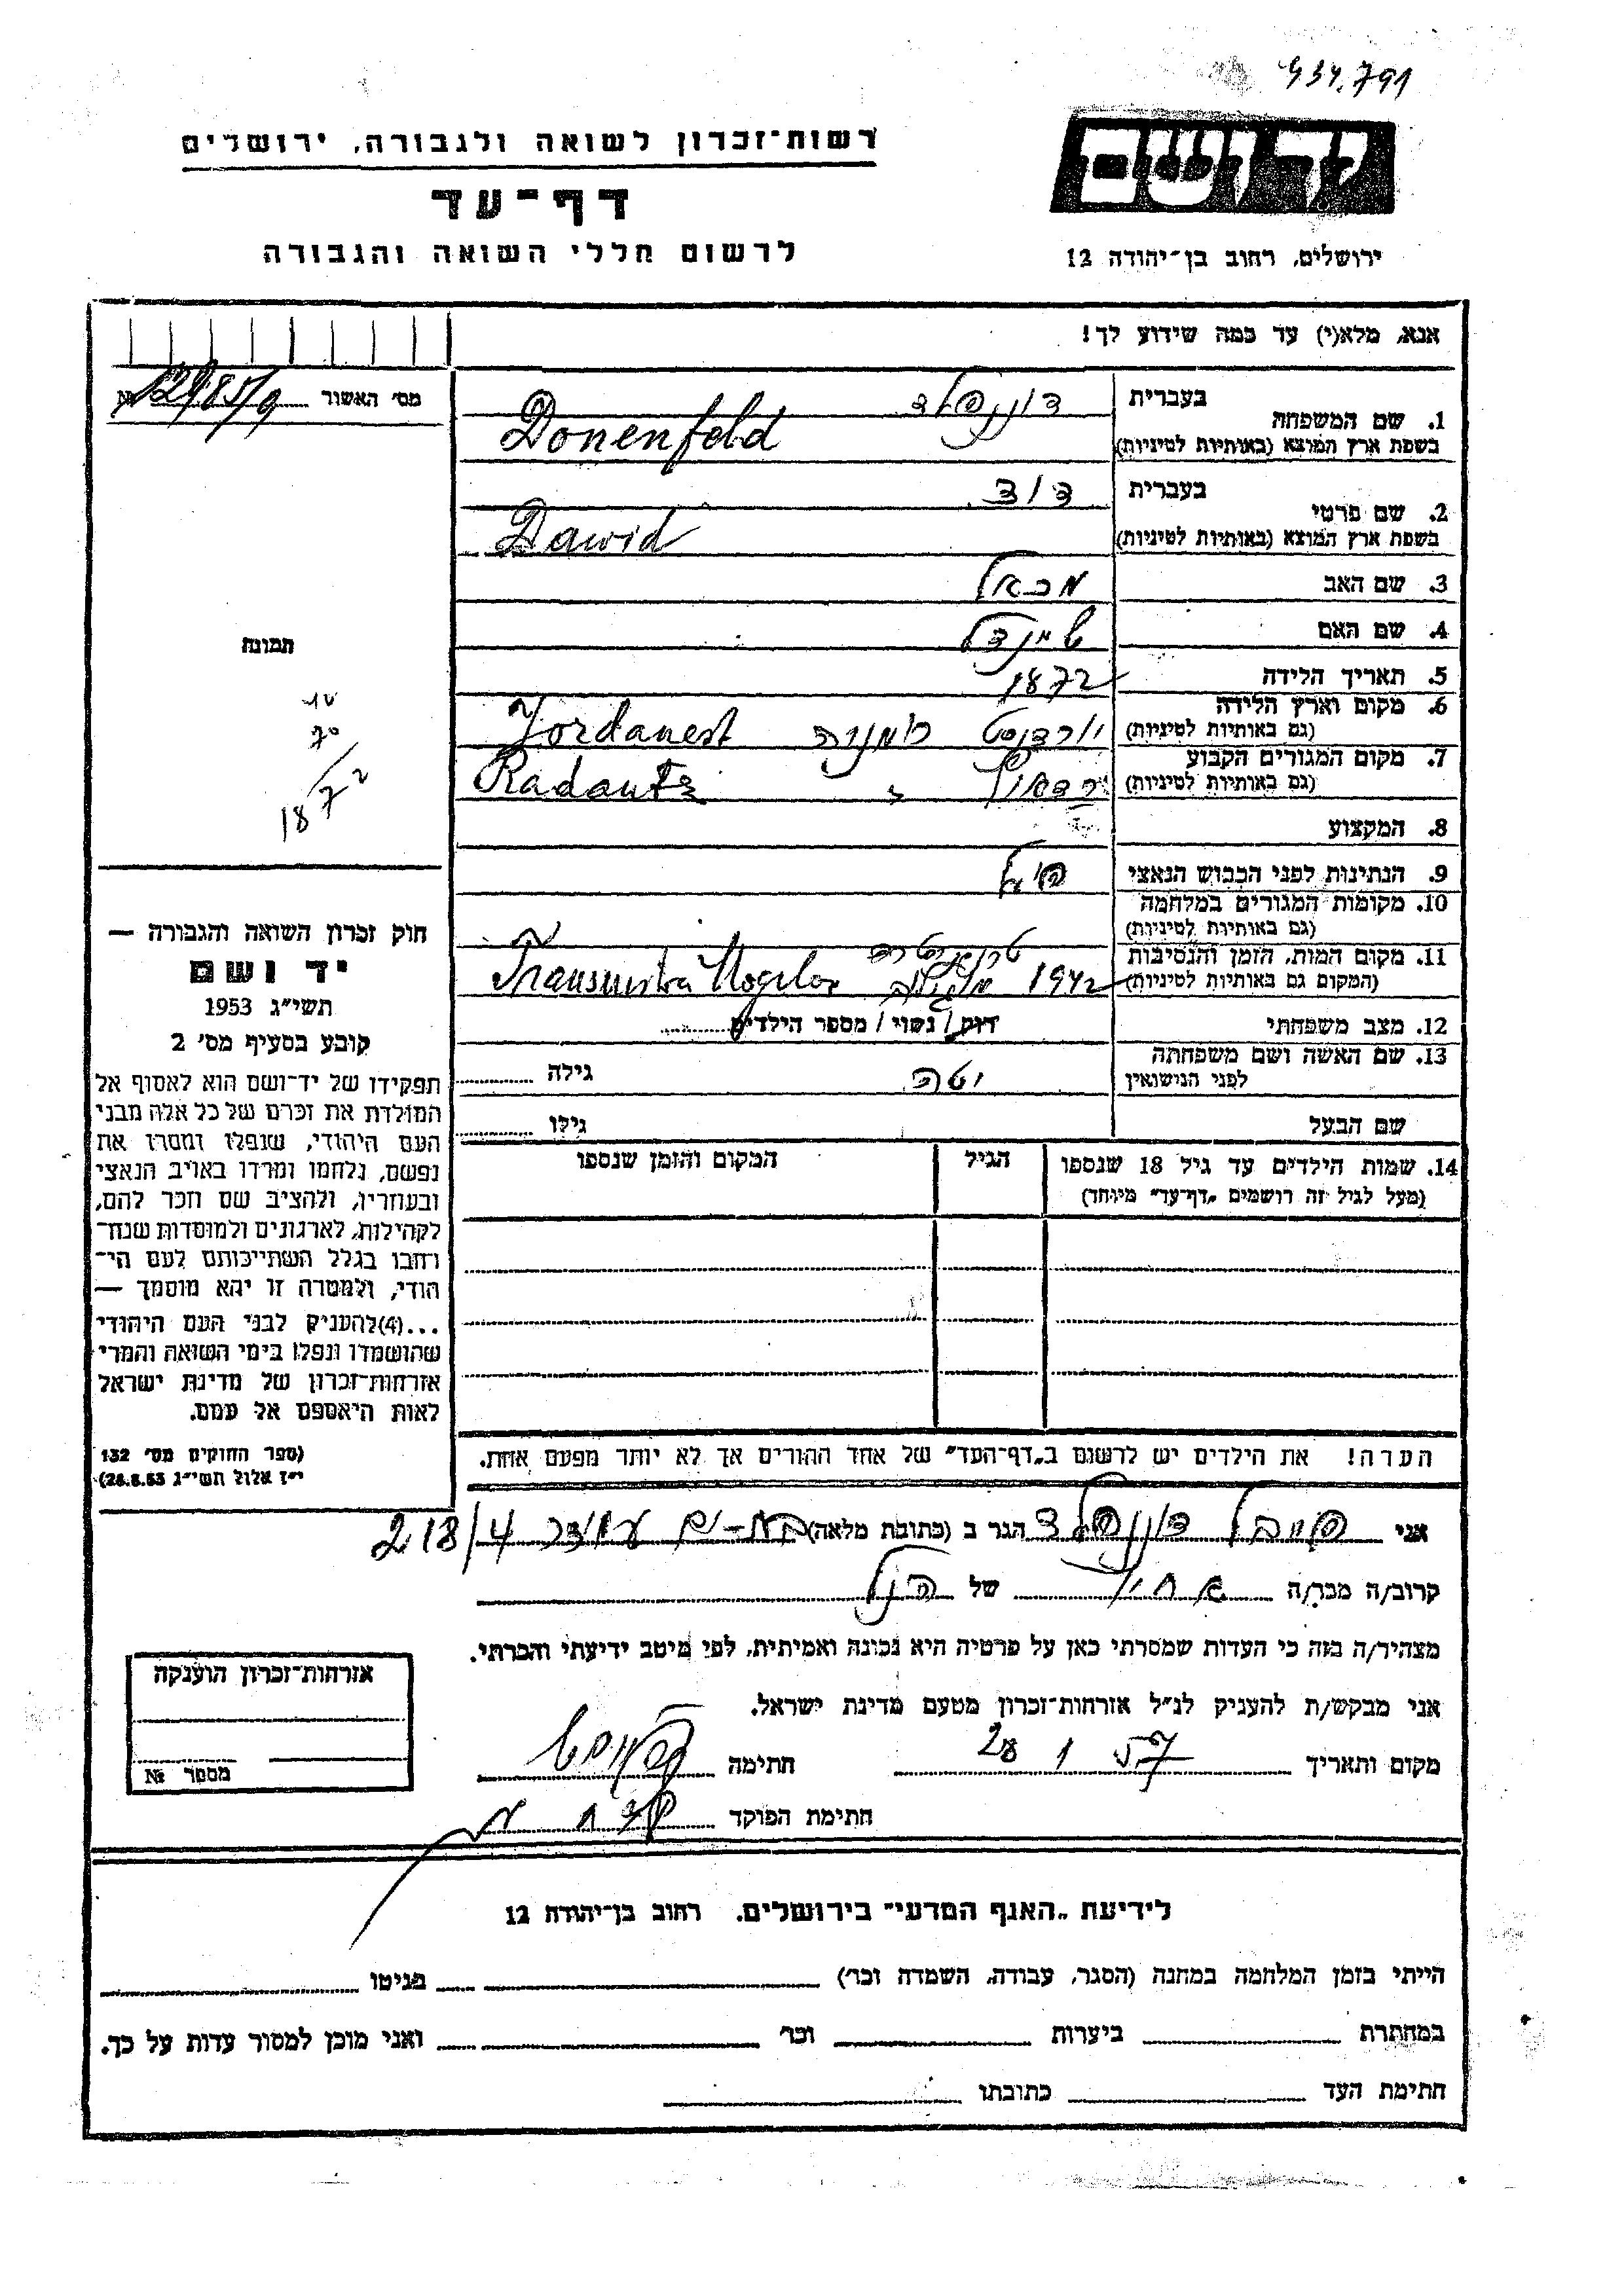 434.791
רשות־זכרון לשואה ולגבורה, ירושלים
יד ושם
דף־עד
לרשום חללי השואה והגבורה
ירושלים, רחוב בן־יהודה 12
אנא, מלא(י) עד כמה שידוע לך!
מס' האשור №
1. שם המשפחה בעברית דוננפלד
בשפת ארץ המוצא (באותיות לטיניות) Donenfeld
2. שם פרטי בעברית דוד
בשפת ארץ המוצא (באותיות לטיניות) Dawid
3. שם האב מכאל
4. שם האם שינדל
5. תאריך הלידה 1872
6. מקום וארץ הלידה יורדנסט רומניה Jordanest
(גם באותיות לטיניות)
7. מקום המגורים הקבוע Radautz
(גם באותיות לטיניות)
8. המקצוע
9. הנתינות לפני הכבוש הנאצי
10. מקומות המגורים במלחמה
(גם באותיות לטיניות)
11. מקום המות, הזמן והנסיבות טרנסניסטריה
(המקום גם באותיות לטיניות) 1942 מוגילב Transnistra Mogilov
12. מצב משפחתי רווק / נשוי / מספר הילדים
13. שם האשה ושם משפחתה יטה גילה
לפני הנישואין
שם הבעל גילו
14. שמות הילדים עד גיל 18 שנספו הגיל המקום והזמן שנספו
(מעל לגיל זה רושמים „דף־עד" מיוחד)
הערה! את הילדים יש לרשום ב„דף־העד" של אחד ההורים אך לא יותר מפעם אחת.
תמונה
70
1872
חוק זכרון השואה והגבורה —
יד ושם
תשי"ג 1953
קובע בסעיף מס' 2
תפקידו של יד־ושם הוא לאסוף אל
המולדת את זכרם של כל אלה מבני
העם היהודי, שנפלו ומסרו את
נפשם, נלחמו ומרדו באויב הנאצי
ובעוזריו, ולהציב שם וזכר להם,
לקהילות, לארגונים ולמוסדות שנח־
רבו בגלל השתייכותם לעם הי־
הודי, ולמטרה זו יהא מוסמך —
...(4) להעניק לבני העם היהודי
שהושמדו ונפלו בימי השואה והמרי
אזרחות־זכרון של מדינת ישראל
לאות היאספם אל עמם.
(ספר החוקים מס' 132
י"ז אלול תשי"ג 28.8.53)
אני פייבל דוננפלד הגר ב (כתובת מלאה) בת-ים 218/4
קרוב/ה מכר/ה אחיו של הנ"ל
מצהיר/ה בזה כי העדות שמסרתי כאן על פרטיה היא נכונה ואמיתית, לפי מיטב ידיעתי והכרתי.
אני מבקש/ת להעניק לנ"ל אזרחות־זכרון מטעם מדינת ישראל.
מקום ותאריך 28 1 57 חתימה
חתימת הפוקד
אזרחות־זכרון הוענקה
מספר №
לידיעת „האגף המדעי" בירושלים, רחוב בן־יהודה 12
הייתי בזמן המלחמה במחנה (הסגר, עבודה, השמדה וכו') בגיטו
במחתרת ביערות וכו' ואני מוכן למסור עדות על כך.
חתימת העד כתובתו